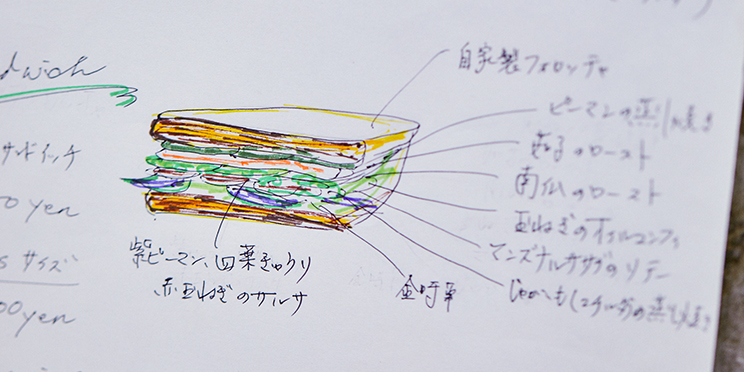 dwich
サンドイッチ
0 yen
s サイズ
00 yen
自家製フォカッチャ
ピーマンの蒸し焼き
茄子のロースト
南瓜のロースト
玉ねぎのオイルコンフィ
マンズナルササゲのソテー
じゃがいも
の蒸し焼き
紫ピーマン、四葉きゅうり
赤玉ねぎのサルサ
金時草